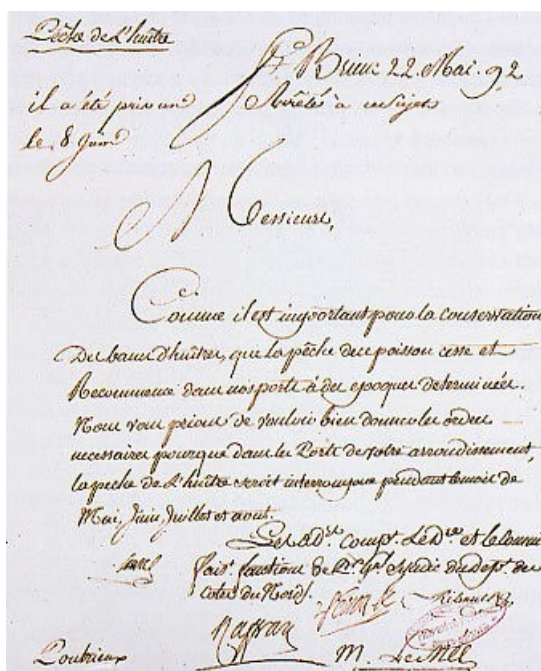 Pêche de L'huître
St. Brieuc 22. Mai. 92
il a été pris un Arrêté à ce sujet
le 8 Juin
Messieurs,
Comme il est important pour la conservation
Des bancs d'huîtres, que la pêche du poisson cesse et
Recommence dans nos ports à des epoques determinées.
Nous vous prions de vouloir bien donner les ordres
necessaires pour que dans les Ports de votre arrondissement,
la peche de L'huître serait interrompue pendant le mois de
Mai, Juin, Juillet et aout.
Les ad. comp. Le D. et le
fais. fonctions de du Dep. des
Cotes du Nord.
Pontrieux